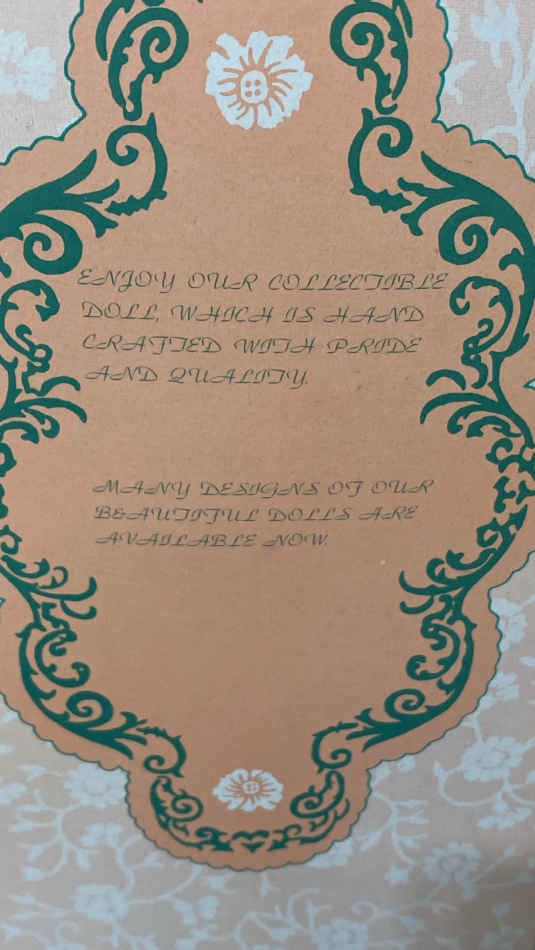 ENJOY OUR COLLECTIBLE
DOLL, WHICH IS HAND
CRAFTED WITH PRIDE
AND QUALITY.
MANY DESIGNS OF OUR
BEAUTIFUL DOLLS ARE
AVAILABLE NOW.